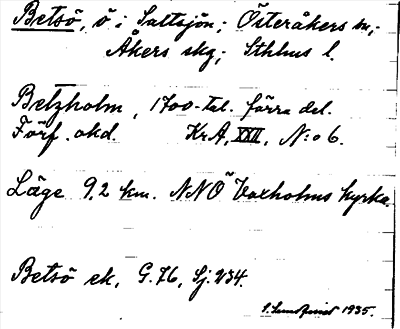 Betsö, ö i Saltsjön; Österåkers sn;
Åkers skg; Sthlms l.
Betzholm, 1700-tal. förra del.
Förf. okd. Kr.A, XXII, N:o 6.
Läge 9,2 km. NNÖ Vaxholms kyrka.
Betsö ek, G.76, Sj. 234.
S. Lundquist 1935.